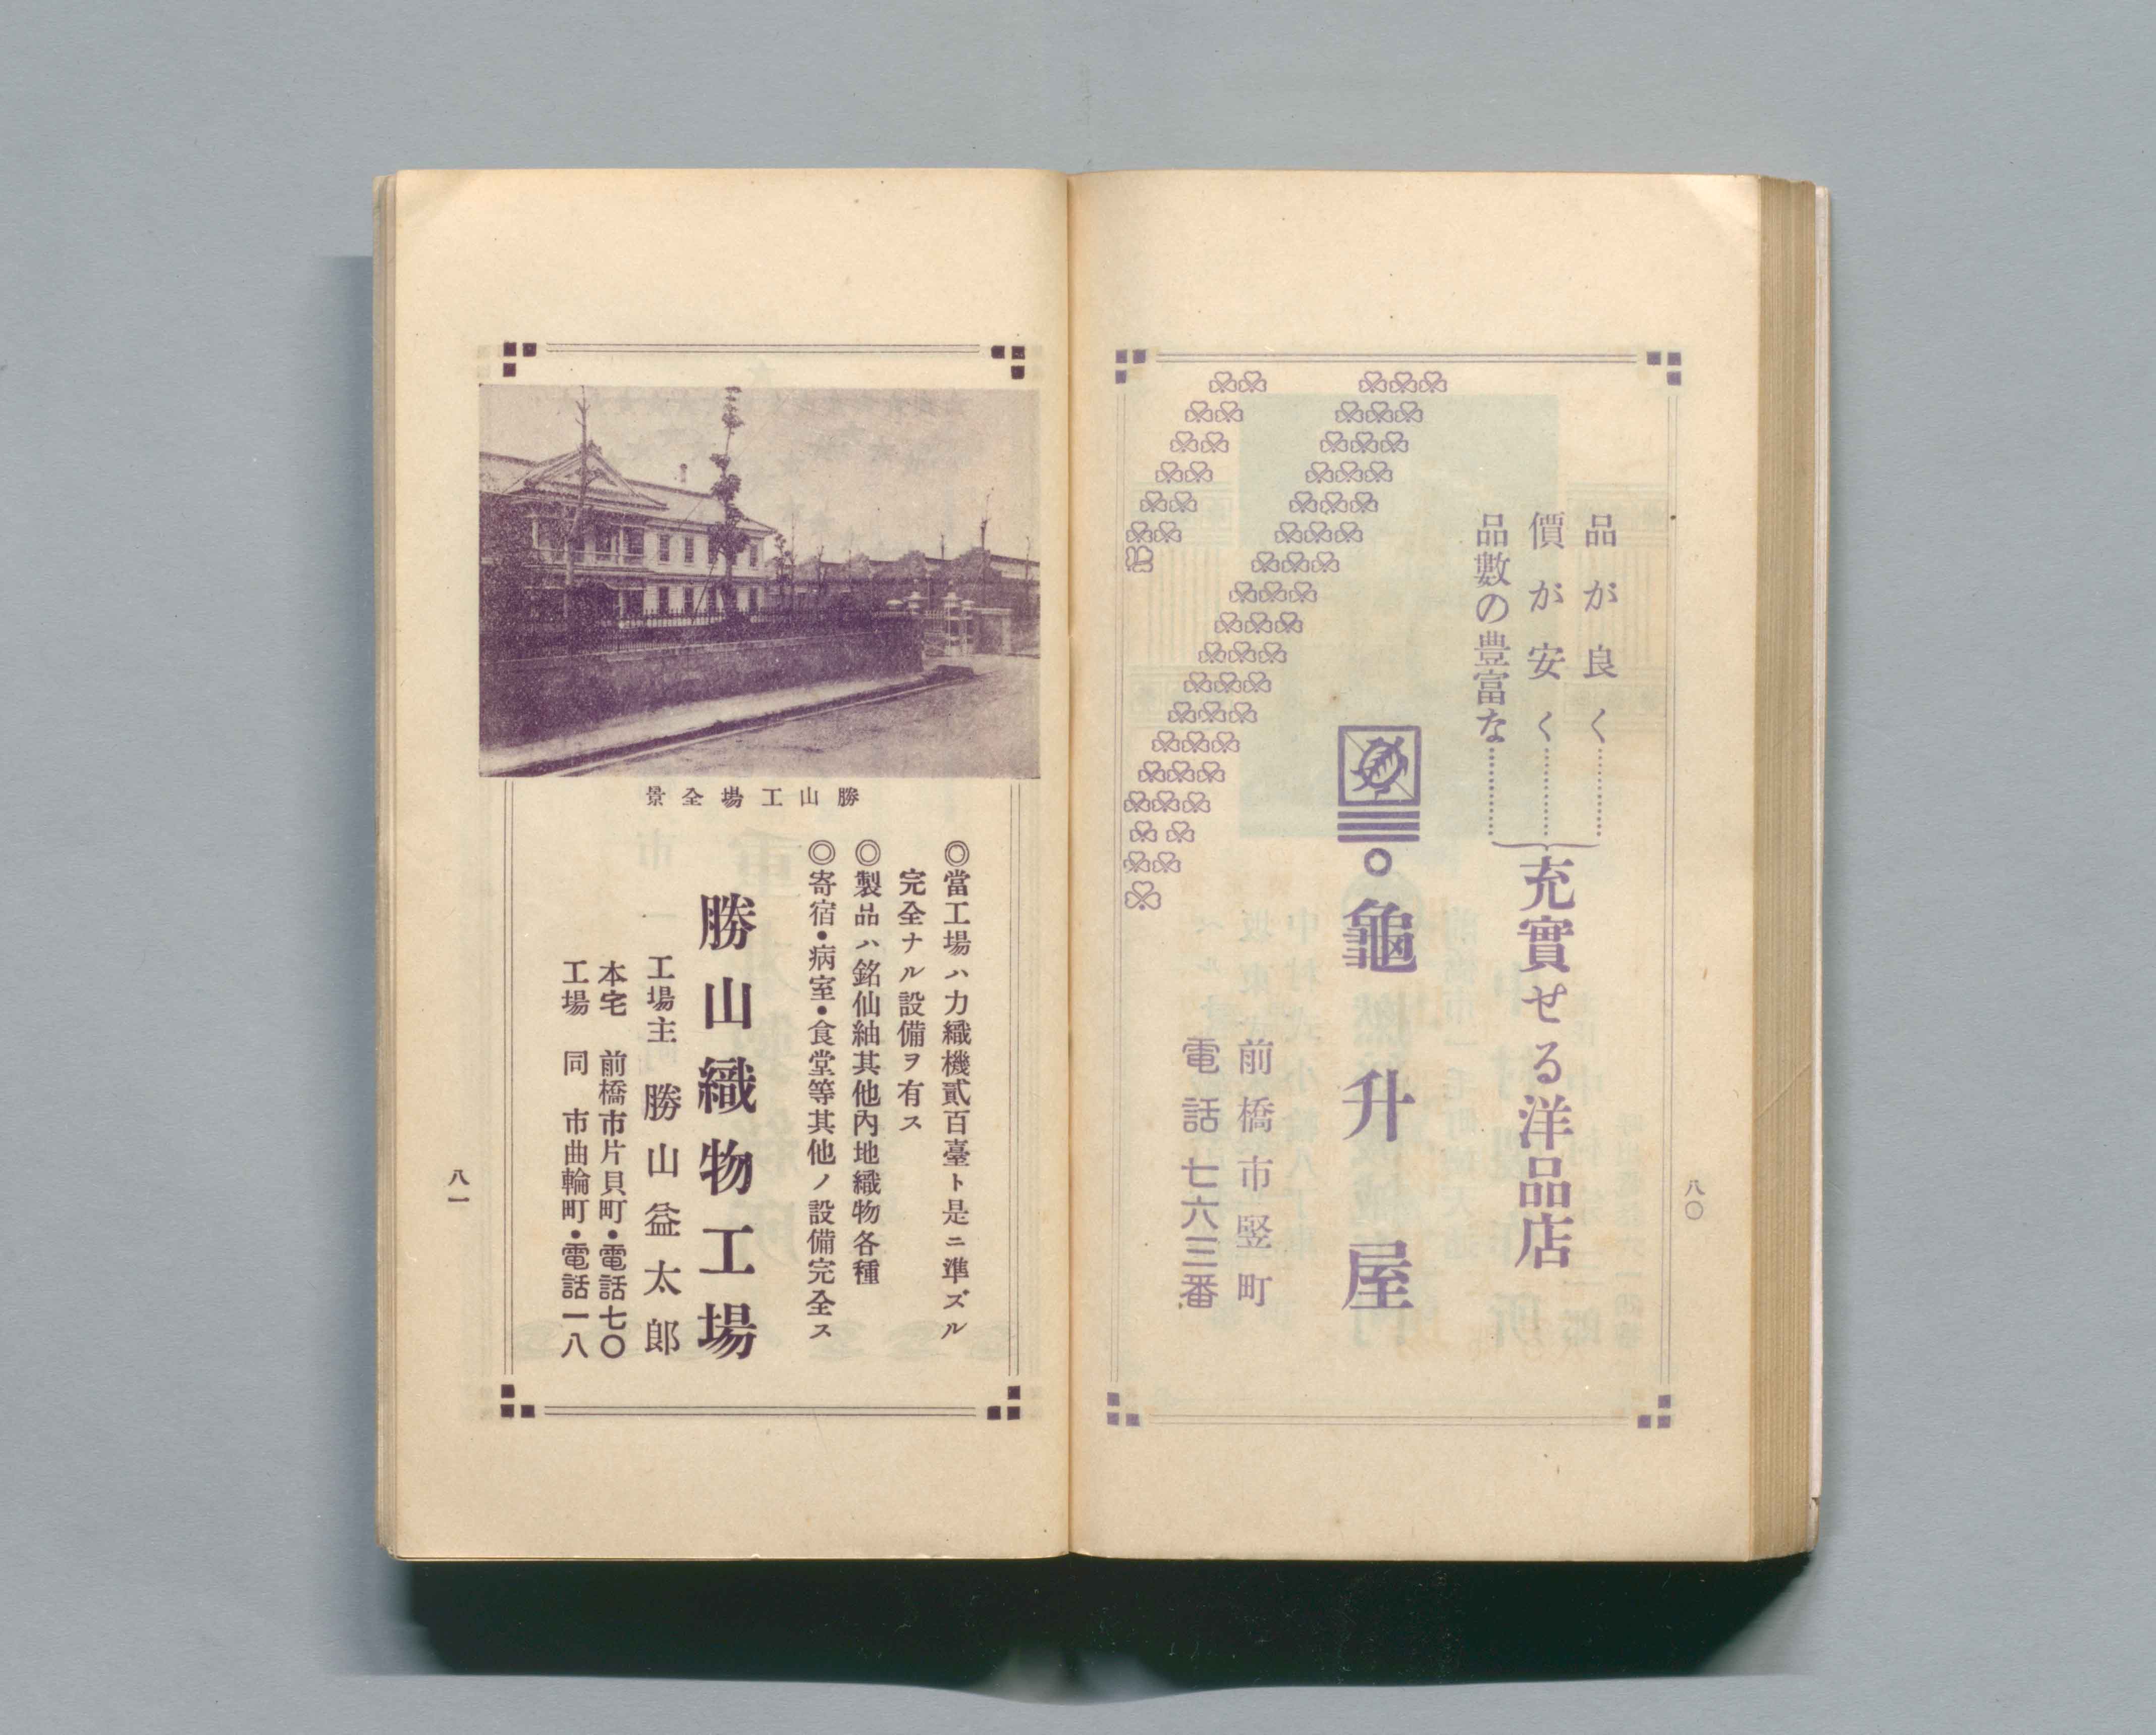 品が良く
價が安く
品數の豊富な
充實せる洋品店
龜升屋
前橋市竪町
電話七六三番
八〇
勝山工場全景
◎當工場ハ力織機貳百臺ト是ニ準ズル
完全ナル設備ヲ有ス
◎製品ハ銘仙紬其他內地織物各種
◎寄宿・病室・食堂等其他ノ設備完全ス
勝山織物工場
工場主 勝山益太郎
本宅 前橋市片貝町・電話七〇
工場 同 市曲輪町・電話一八
八一